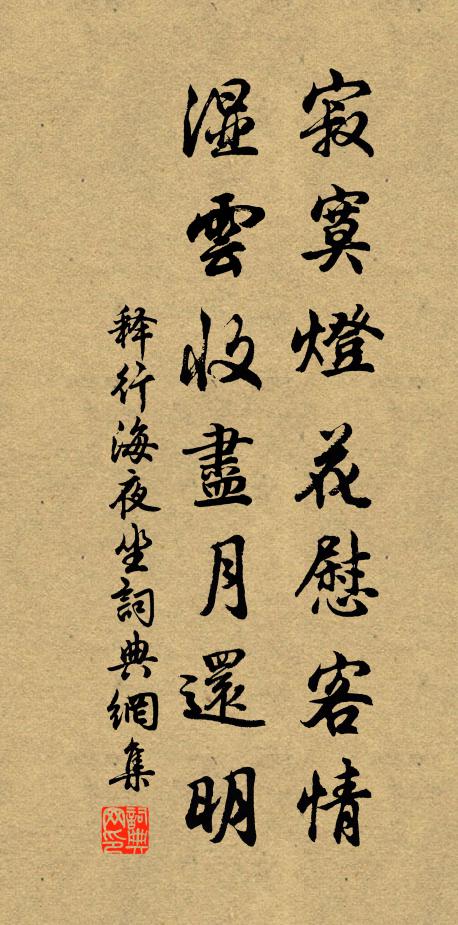 寂寞燈花慰客情
濕雲收盡月還明
释行海夜坐詞典網集
詞典網印